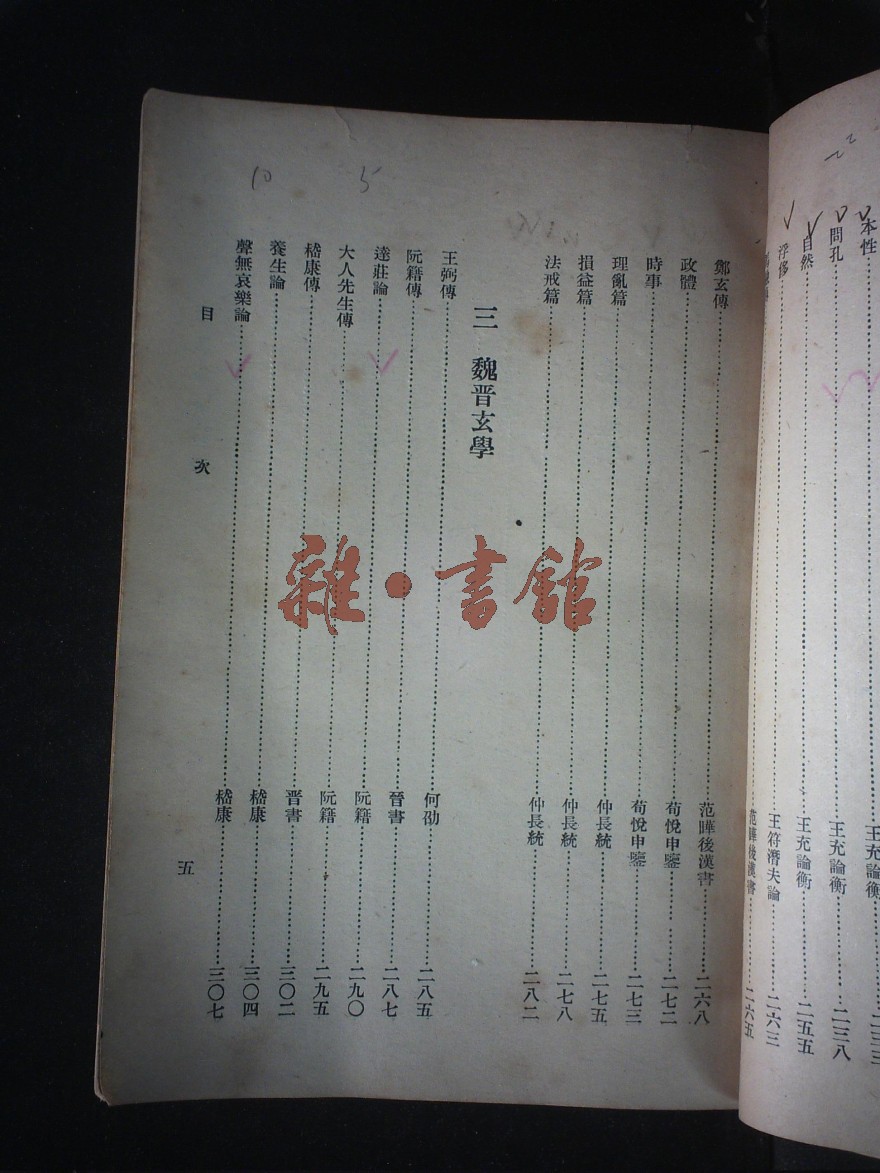 本性……王充論衡……二三三
問孔……王充論衡……二三八
自然……王充論衡……二五五
浮侈……王符潛夫論……二六三
范曄後漢書……二六五
鄭玄傳……范曄後漢書……二六八
政體……荀悅申鑒……二七二
時事……荀悅申鑒……二七三
理亂篇……仲長統……二七五
損益篇……仲長統……二七八
法戒篇……仲長統……二八二
三 魏晋玄學
王弼傳……何劭……二八五
阮籍傳……晉書……二八七
達莊論……阮籍……二九〇
大人先生傳……阮籍……二九五
嵇康傳……晋書……三〇二
養生論……嵇康……三〇四
聲無哀樂論……嵇康……三〇七
目次
五
10
5
雜·書館